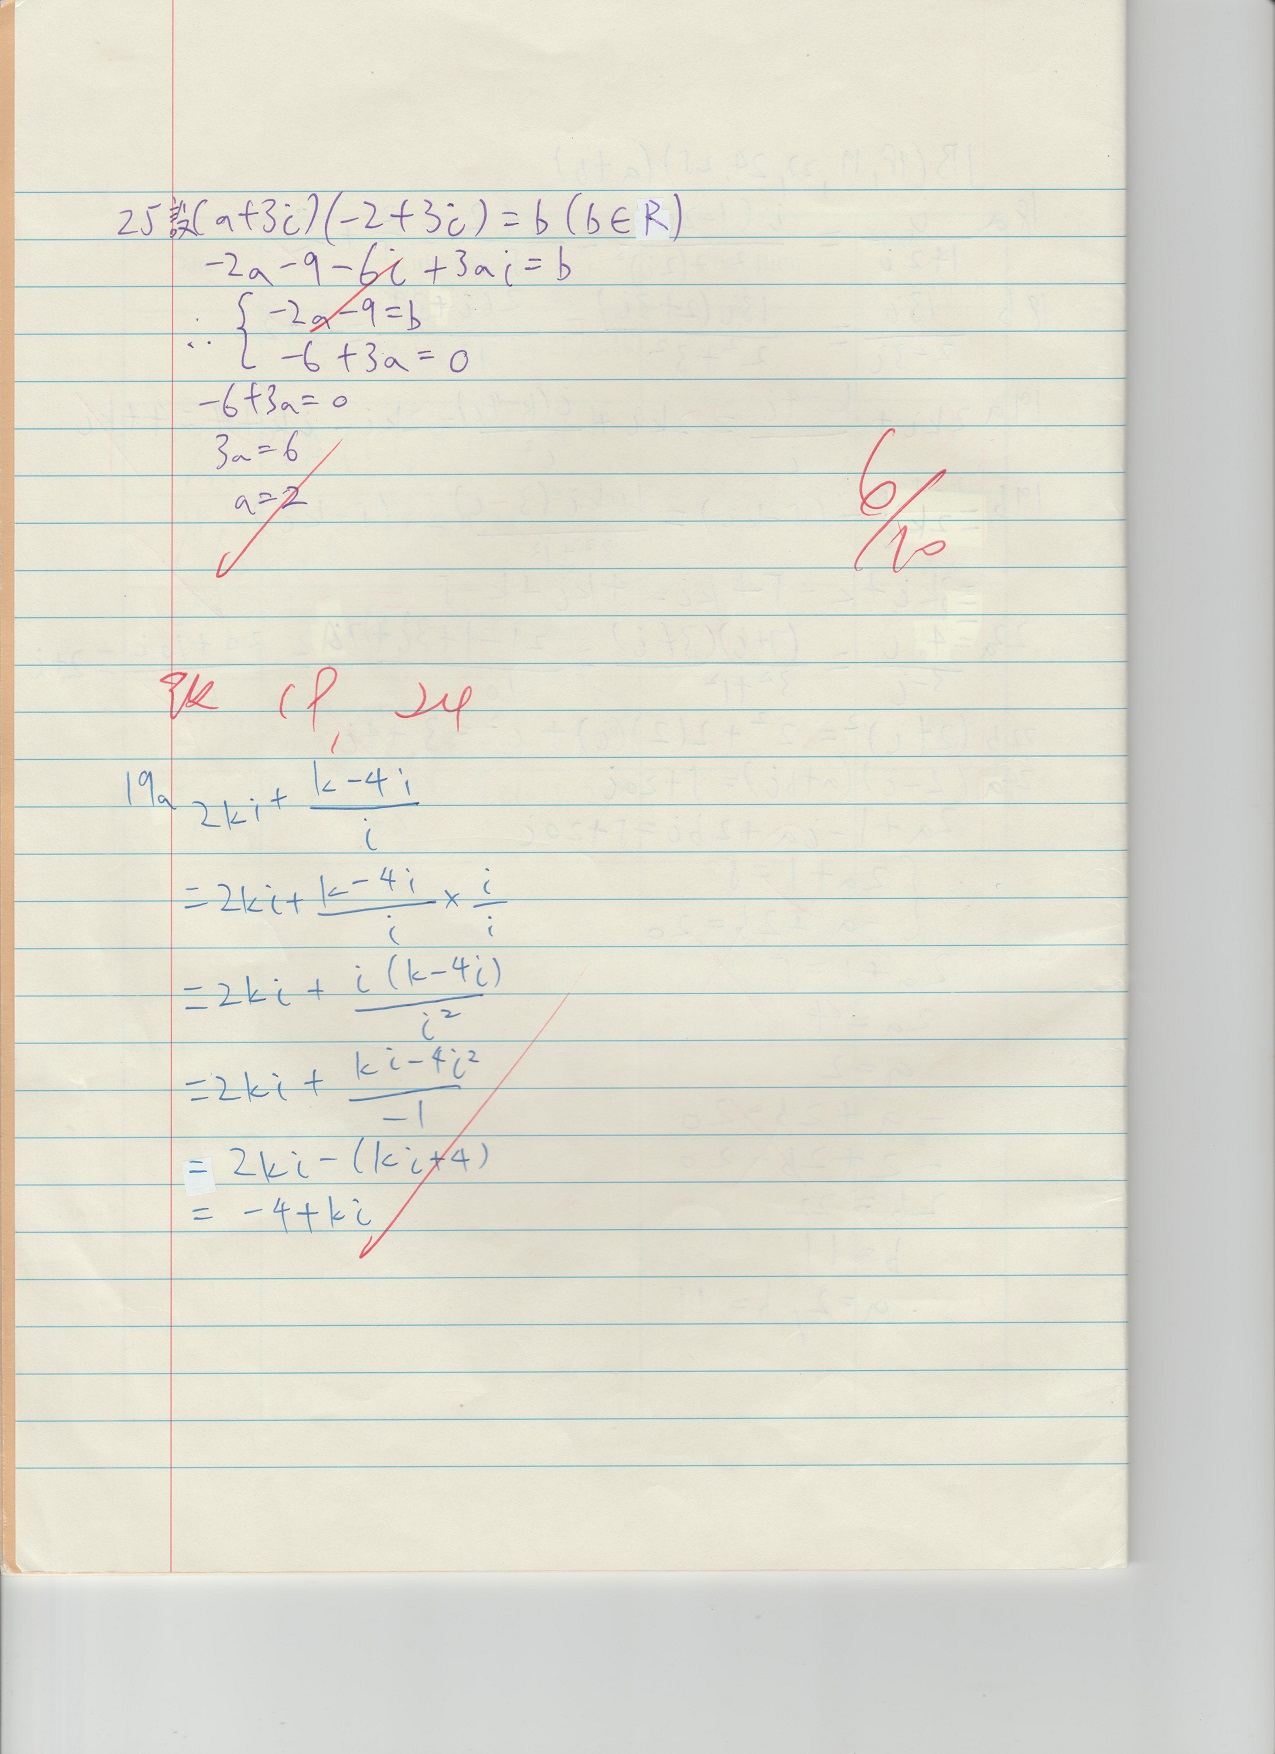 25 設(a+3i)(-2+3i)=b (b∈R)
-2a-9-6i+3ai=b
∴ { -2a-9=b
-6+3a=0
-6+3a=0
3a=6
a=2
6/10
19a 2ki+ (k-4i)/i
=2ki+ (k-4i)/i × i/i
=2ki+ i(k-4i)/i²
=2ki+ (ki-4i²)/-1
= 2ki-(ki+4)
= -4+ki